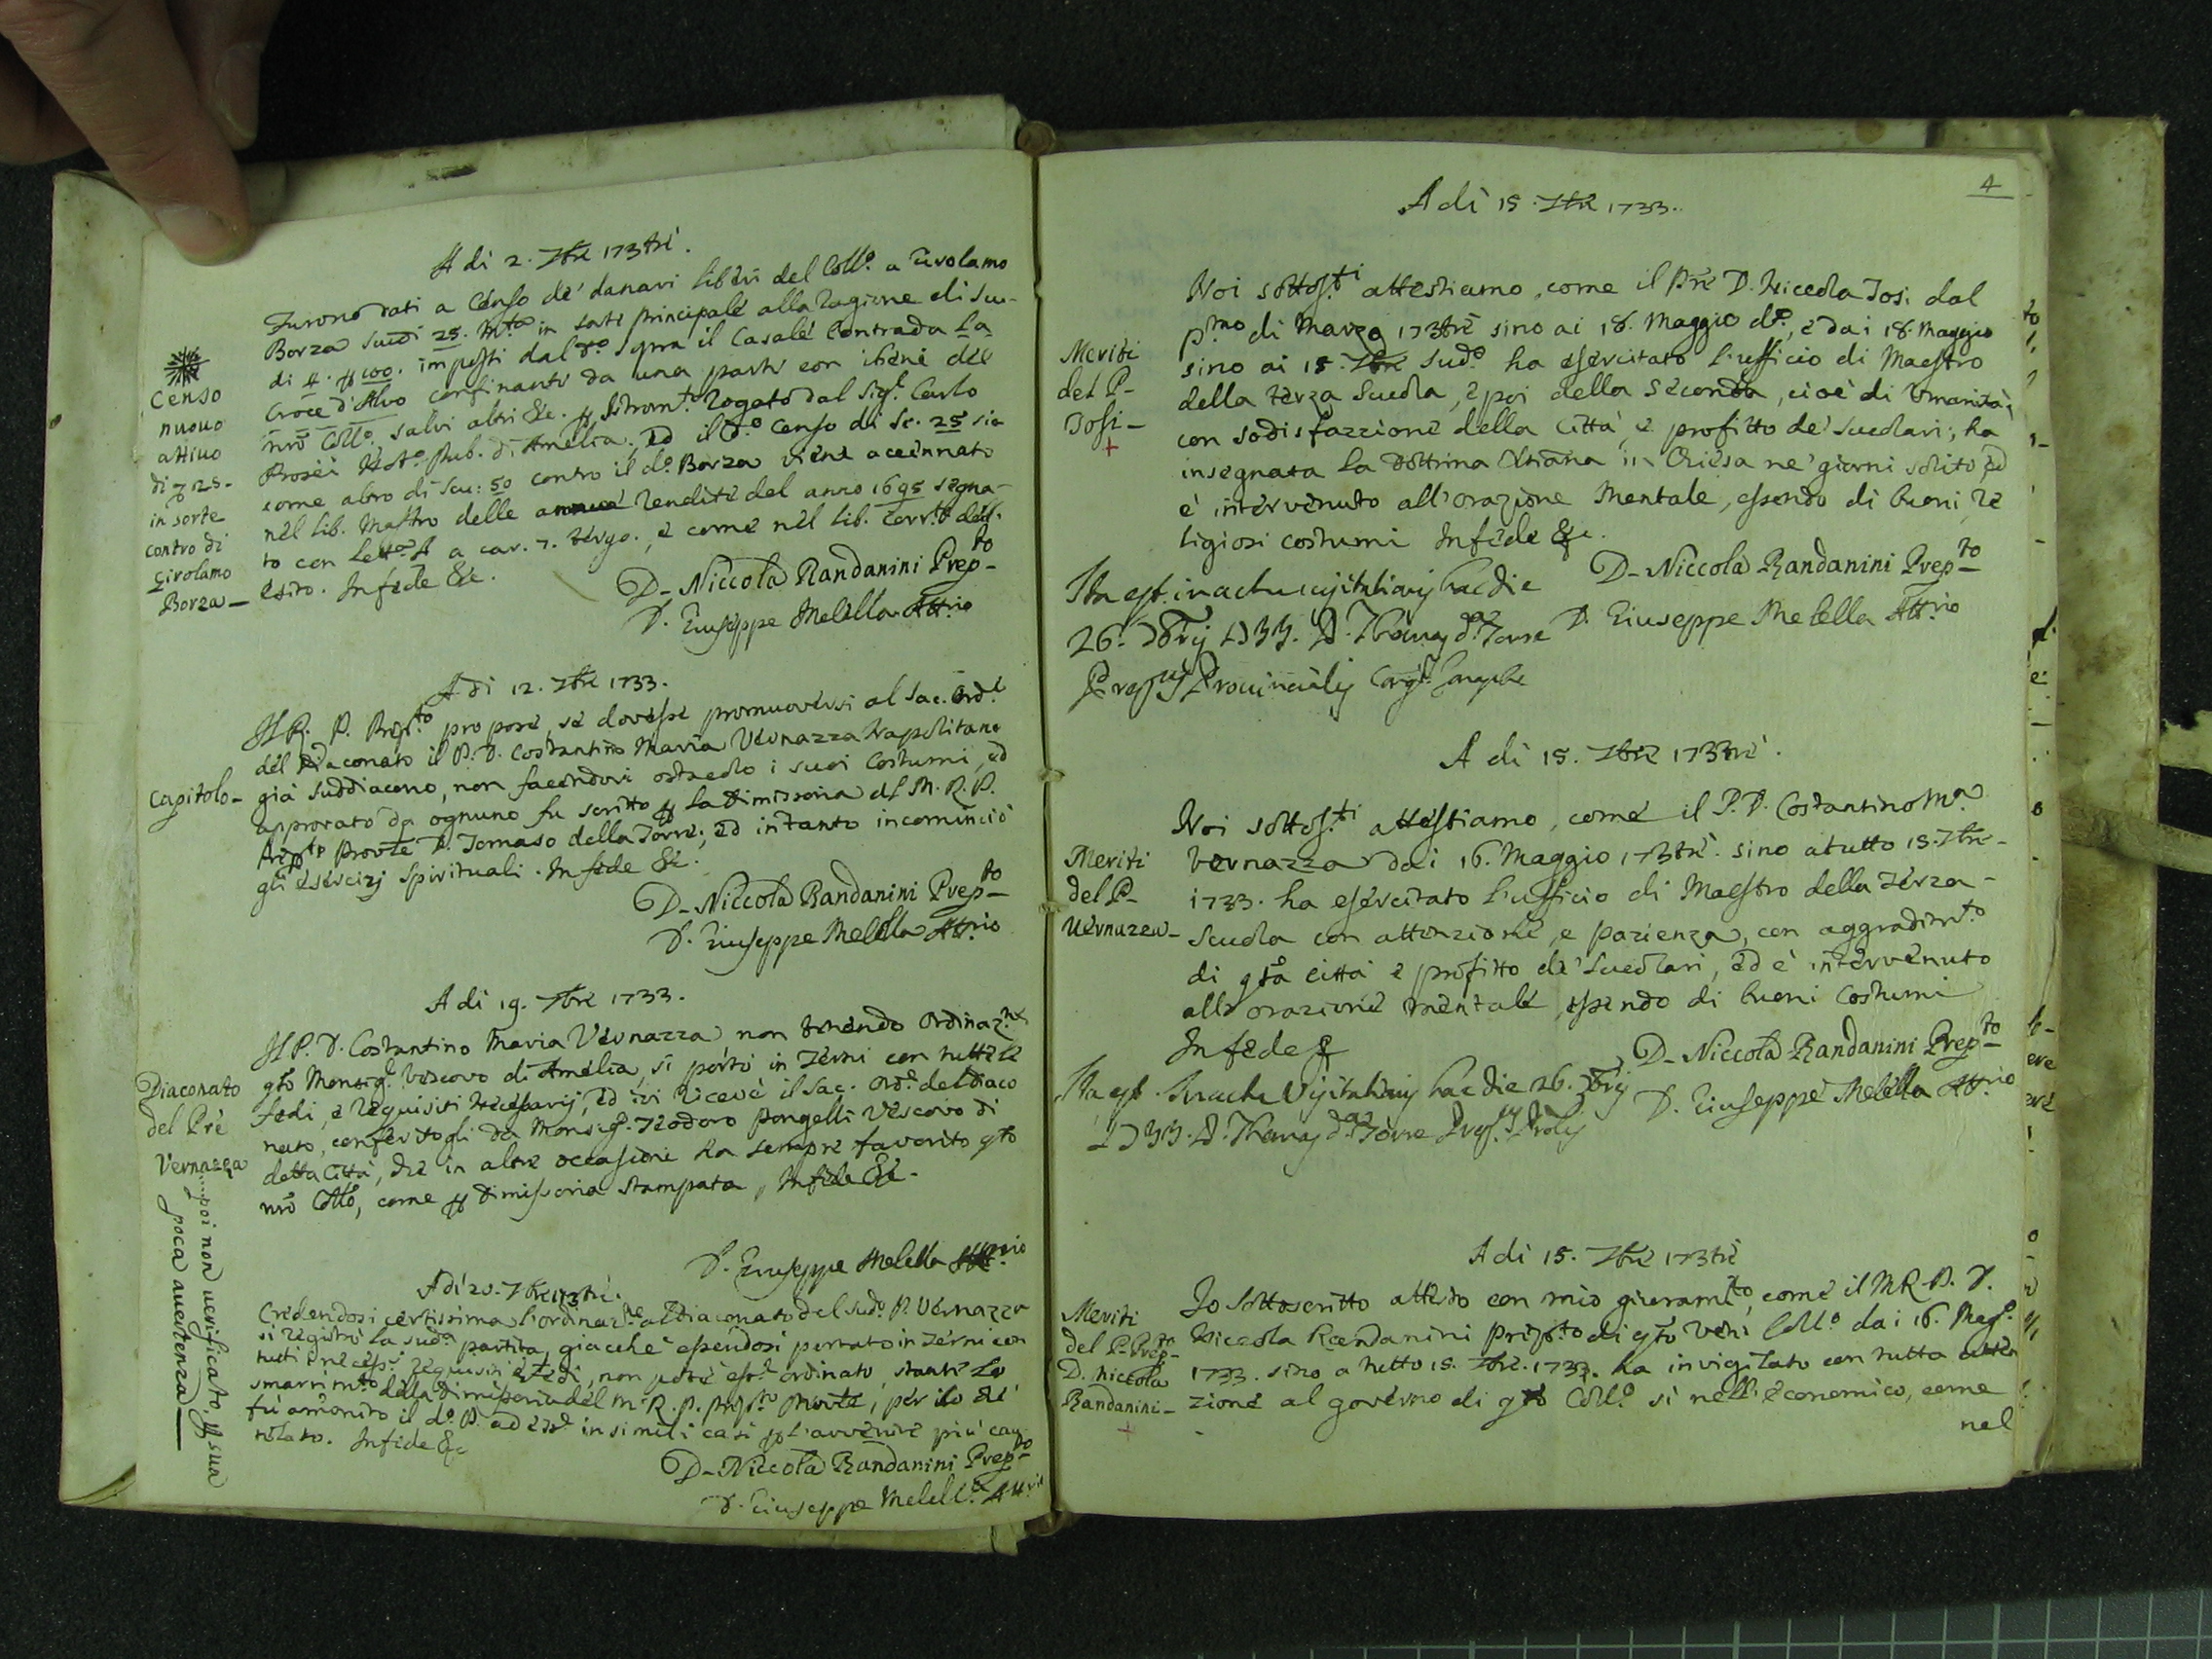 A di 2. 7bre 173trè.
Furono dati a Censo de' danari liberi del Coll.o a Girolamo
Borza Scudi 25. M.ta in sorte principale alla ragione di Scu-
di 4. p 100. imposti dal d.o sopra il Casale Contrada La
Croce d'Alvo confinante da una parte con i beni del
nrõ Coll.o, salvi altri &c. p Istrom.to rogato dal Sig.r Carlo
Rosei Not.o Pub. di Amelia; Ed il d.o Censo di Sc. 25 sic
come altro di Scu: 50 contro il d.o Borza viene accennato
nel lib. Mastro delle annue rendite del anno 1695 segna-
to con lett.a A a car. 7. tergo., e come nel lib. corr.te dell'
Esito. In fede &c.
D. Niccola Randanini Prep.to
D. Giuseppe Melella Att.rio
Censo
nuovo
attivo
di 25-
in sorte
contro di
Girolamo
Borza-
A di 12. 7bre 1733.
Il R. P. Prep.to propose, se dovesse promuoversi al Sac. Ord.e
del Diaconato il P. D. Costantino Maria Vernazza Napolitano
già suddiacono, non facendovi ostacolo i suoi Costumi, ed
approvato da ognuno fu scritto p la Dimissoria al M. R. P.
Prep.to Provle D. Tomaso della Torre; ed intanto incominciò
gli esercizj spirituali. In fede &c.
Capitolo-
D. Niccola Randanini Prep.to
D. Giuseppe Melella Att.rio
A di 19. 7bre 1733.
Il P. D. Costantino Maria Vernazza non tenendo Ordinaz.ne
q.to Monsig.r Vescovo di Amelia, si portò in Terni con tutte le
fedi, e requisiti necessarij, ed ivi ricevè il Sac. Ord.e del Diaco
nato, conferitogli da Monsig.r Teodoro Pongelli Vescovo di
detta Città, che in altre occasioni ha sempre favorito q.to
nrõ Collo, come p dimissoria stampata, In fede &c.
Diaconato
del Prè
Vernazza
poi non verificato p sua
poca avertenza
D. Giuseppe Melella Att.rio
A di 20. 7bre 173trè.
Credendosi certissima l'ordinaz.ne al Diaconato del sud.o P. Vernazza
si registrò la sud.a partita, giacchè essendosi portato in Terni con
tutti i necess.i requisiti e Fedi, non potè ess.e ordinato, stante lo
smarrim.to della Dimissoria del M. R. P. Prep.to Provle, per il che
fu amonito il d.o P. ad ess.e in simili casi p l'avvenire più cau
telato. In fede &c
D. Niccola Randanini Prep.to
D. Giuseppe Melella Att.rio
4
A di 15. 7bre 1733.
Noi sottos.ti attestiamo, come il Prè D. Niccola Tosi dal
p.mo di Marzo 173trè sino ai 18. Maggio d.o, e da i 18. Maggio
sino ai 15. 7bre sud.o ha esercitato l'ufficio di Maestro
della terza Scuola, e poi della seconda, cioè di Umanità,
con sodisfazzione della Città, e profitto de' Scuolari; ha
insegnata la Dottrina Xtiana in Chiesa ne' giorni solito, ed
è intervenuto all'orazione Mentale, essendo di buoni, re
ligiosi costumi In fede &c.
Meriti
del P-
Tosi-
+
D. Niccola Randanini Prep.to
D. Giuseppe Melella Att.rio
Ita est. in actu visitationis hac die
26. 1733. D. Thomas d.a Torre
Prep.us Provincialis
A di 15. 7bre 173trè.
Noi sottos.ti attestiamo, come il P. D. Costantino M.a
Vernazza dai 16. Maggio 173trè. sino a tutto 15. 7bre-
1733. ha esercitato l'ufficio di Maestro della Terza-
Scuola con attenzione, e pazienza, con aggradim.to
di q.ta Città e profitto de' Scuolari, ed è intervenuto
alla orazione mentale, essendo di buoni Costumi
In fede &
Meriti
del P-
Vernazza-
D. Niccola Randanini Prep.to
D. Giuseppe Melella Att.rio
Ita est. In actu Visitationis hac die 26.
1733. D. Thomas d.a Torre Prep.us Prolis
A di 15. 7bre 173trè
Io Sottoscritto attesto con mio giuram.to, come il M R. P. D.
Niccola Randanini Prep.to di q.to Ven. Coll.o dai 16. Mag.o
1733. sino a tutto 15. 7bre. 1733. ha invigilato con tutta atten
zione al governo di q.to Coll.o sì nell'economico, come
nel
Meriti
del P. Prep.to
D. Niccola
Randanini-
+